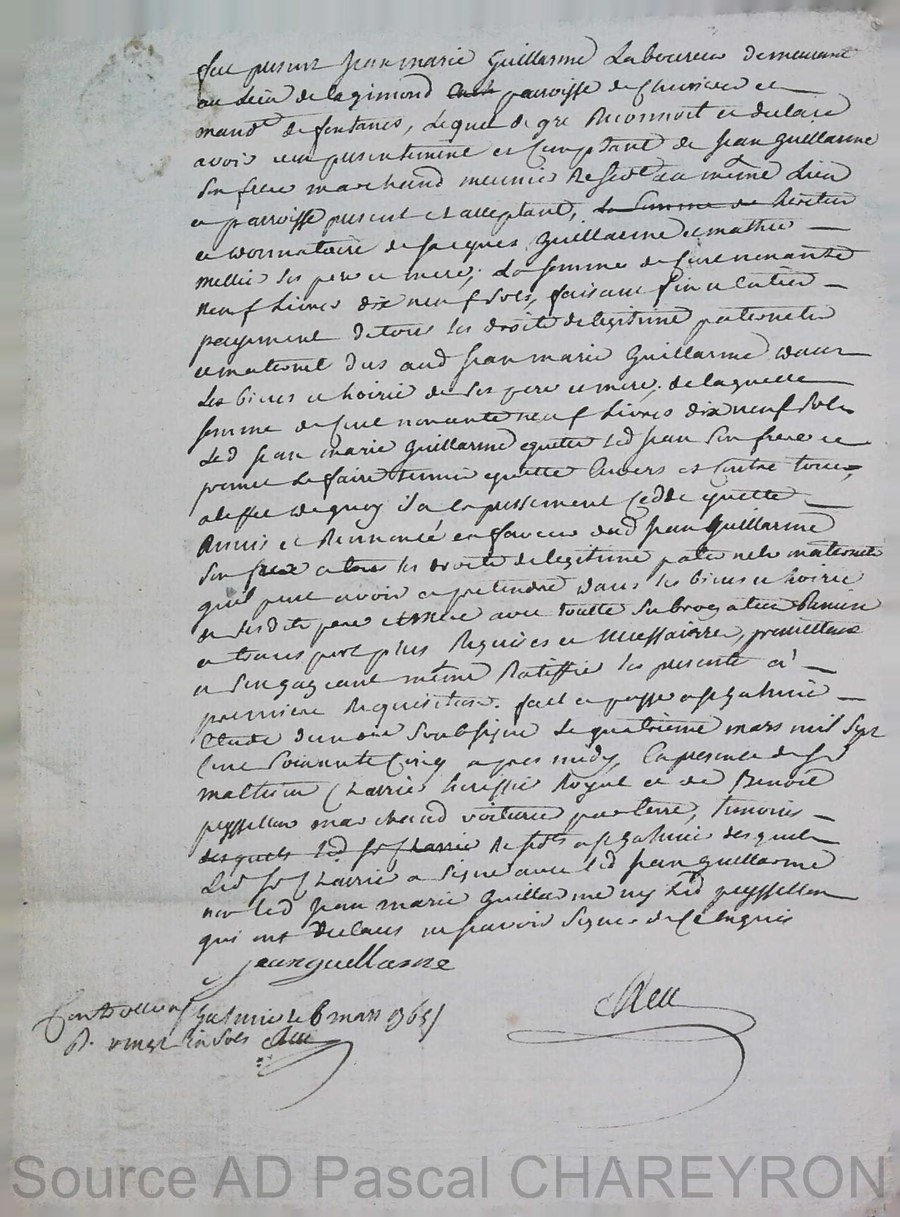 fut present Jean marie Guillarme Laboureur demeurant
au Lieu de lagimond parroisse de Chevrieres et
mand.t de fontanes, Lequel de gre Reconnoit et declare
avoir eu presentement et Comptant de Jean Guillarme
son frere marchand meunier Resid.t au même Lieu
et parroisse present et acceptant, la somme de heritier
et donnataire de Jacques Guillarme et mathie
mellie ses pere et mere; La somme de Cent nonante
neuf Livres dix neuf sols, faisant fin et entier
payement de tous les droits de legitime paternels
et maternels dus aud Jean marie Guillarme dans
les biens et hoirie de ses pere et mere; de laquelle
somme de Cent nonante neuf Livres dix neuf sols
Led Jean marie Guillarme quitte led Jean son frere et
promet le faire tenir quitte Envers et Contre tous,
a leffet de quoy il a Expressement Cedde quitte
Remis et Renoncé en faveur dud Jean Guillarme
son frere a tous les droits de legitime paternels maternels
quil peut avoir et pretendre dans les biens et hoirie
de sesdits pere et mere avec toutte subrogation Remise
et transport plus Requises et necessaires, promettant
et sengageant même Ratiffier les presentes a
premiere Requisition. fait et passé a st galmier
Etude du no.re soubsigné Le quatrieme mars mil sept
Cent soixante Cinq apres midy, En presence de s.r
mathieu Charrie huissier Royal et de Benoit
peyssellon marchand voiturier par terre, temoins
desquels led s.r Charrie Resid.ts a st galmier desquels
Led s.r Charrie a signé avec led Jean Guillarme
non led Jean marie Guillarme ny Led peyssellon
qui ont declaré ne sçavoir signer de Ce Enquis
jean guillarme
Controllé a st Galmier le 6 mars 1765
R. vingt six sols